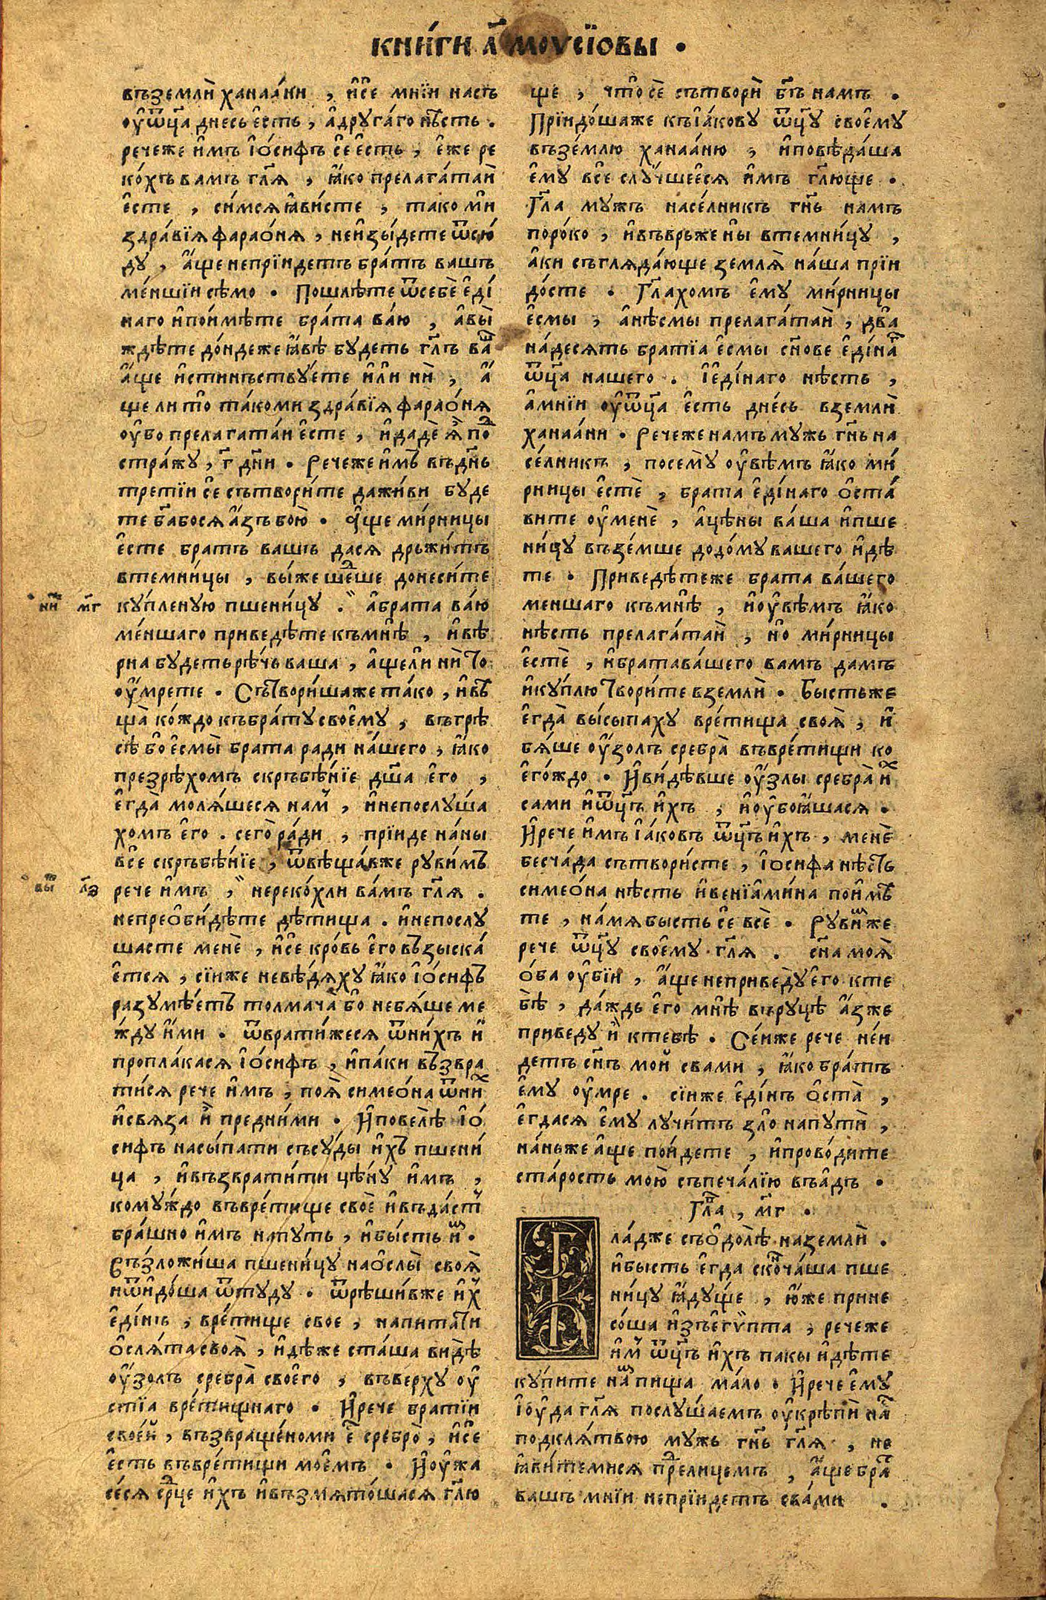 кни́ги а҃ моѵсі́ѡвы •
въземлѝ ханаа́ни , и҆се мні́и насъ
оу҆ѿц҃а днесь е҆сть , а҆друга́го нѣ́сть .
речеже и҆мъ і҆о́сифъ сѐ есть , е҆же ре
ко́хъ вамъ гл҃я , ꙗ҆ко прелага́таи
е҆сте , си́мся ꙗ҆ви́сте , тако ми
здра́вїя фарао́ня , неизы́дете ѿсю́
ду , а҆ще непрїидетъ братъ вашъ
ме́ншїи сѣ́мо • Пошлѣ́те ѿсебѐ е҆ді́
наго и҆поимѣ́те бра́та ва́ю , а҆вы̀
ждѣ́те до́ндеже ꙗ҆вѣ̀ бу́деть гл҃ъ ва́
а҆́ще и҆́стиньствꙋете и҆лѝ нѝ , а҆́
ще ли то̀ та́коми здра́вїя фарао́ня
оу҆бо прелагатаи е҆сте , и҆дадѐ ꙗ҆̀ по
стра́жу , г҃ дн҃и • Речеже и҆мъ въдн҃ь
третїи сѐ сътвори́те даживи буде
те б҃абося а҆зъ бою̀ • А҆ще ми́рницы
е҆сте братъ вашъ дася дръжи́тъ
втемни́цы , выже ше́дше донеси́те
ку́пленую пшени́цу . а҆брата ва́ю
ме́ншаго приведѣ́те къмнѣ̀ , и҆вѣ́
рна будетьрѣ́чь ваша , а҆щелѝ нѝ то
оу҆́мрете • Сътвори́шаже та́ко , и҆въ
ща̀ ко́ждо къбра́ту своему , въгрѣ
сѣ́ бо е҆смы̀ брата ради на́шего , ꙗ҆ко
презрѣ́хомъ скръбѣ́нїе дш҃а е҆го̀ ,
е҆гда моля́шеся нам , и҆непослу́ша
хомъ е҆го . сего̀ ра́ди , прїиде на́ны
всѐ скръбѣ́нїе , ѿвѣща́вже руви́мъ
рече и҆мъ , нереко́хли ва́мъ гл҃я .
непрео҆би́дѣте дѣ́тища . и҆непослу
шасте менѐ , и҆сѐ кро́вь е҆го въ́зыска́
е҆тся , сїиже невѣ́дяху ꙗ҆ко і҆о́сифъ
разумѣ́еть толмача́ бо небя́ше ме
жду и҆́ми • ѿврати́жеся ѿни́хъ и҆
пропла́кася і҆о́сифъ , и҆па́ки въ́звра
ти́ся рече и҆мъ , поя̀ симео́на ѿни́х
и҆свя́за и҆̀ предни́ми • И҆повелѣ̀ і҆о́
сифъ насы́пати съсу́ды и҆́хъ пшени́
ца , и҆възврати́ти цѣ́ну и҆мъ ,
кому́ждо въвре́тище своѐ и҆въда́ст
бра́шно и҆мъ напу́ть , и҆бы́сть и҆м •
Възложи́ша пшени́цу нао҆слы̀ своя̀
и҆ѿидо́ша ѿту́ду • ѿрѣши́вже и҆х
е҆ді́нъ , вре́тище свое , напита́ти
о҆сля́тасвоя̀ , и҆дѣ́же ста́ша ви́дѣ
оу҆зо́лъ сребра̀ своего , въверху̀ оу҆
стїа вре́тищнаго • И҆рече бра́тїи
свое́и , възвраще́номи е҆ сребро̀ , и҆сѐ
е҆сть въвре́тищи мое́мъ • И҆оужа
се́ся ср҃це и҆хъ и҆възмято́шася гл҃ю
ще , что̀ сѐ сътворѝ б҃гъ намъ .
Прїидо́шаже къі҆а́кову ѿц҃у своему
въземлю ханаа́ню , и҆повѣ́даша
е҆му̀ всѐ слу́чшееся и҆мъ гл҃юще .
Гл҃а мужъ насе́лникъ гн҃ь намъ
поро́ко , и҆въвръже ны̀ втемни́цу ,
а҆ки съгляда́юще земля̀ на́ша прїи
до́сте • Гл҃ахомъ е҆му ми́рницы
е҆смы̀ , а҆нѣсмы прелага́таи , два̀
на́десять бра́тїа е҆смы сн҃ове е҆ді́наг
ѿц҃а нашего . І҆е҆ді́наго нѣ́сть ,
а҆мнїи оу҆ѿц҃а е҆сть дне́сь вземлѝ
ханаа́ни • Речеже намъ мужь гн҃ь на
се́лникъ , посему̀ оу҆вѣмъ ꙗ҆ко ми́
рницы е҆стѐ , брата е҆ді́наго о҆ста́
вите оу҆менѐ , а҆цѣны ва́ша и҆пше
ни́цу възе́мше додо́му вашего и҆дѣ́
те • Приведѣ́теже брата ва́шего
меншаго къмнѣ̀ , и҆оу҆вѣмъ ꙗ҆ко
нѣ́сть прелага́таи , но ми́рницы
е҆стѐ , и҆братава́шего вамъ дамъ
и҆куплю творите вземлѝ • Бы́стьже
е҆гда̀ высы́паху вре́тища своя̀ , и҆
бя́ше оу҆́золъ сребра̀ въвре́тищи ко
е҆го́ждо • И҆ви́дѣвше оу҆́злы сребра̀ и҆х
сами и҆ѿц҃ъ и҆́хъ , и҆оубоꙗ́шася .
И҆рече и҆мъ і҆а́ковъ ѿц҃ъ и҆хъ , менѐ
бесча́да сътвори́сте , і҆о́сифа нѣ́сть
симео́на нѣ́сть и҆венїами́на пои́мѣ
те , на́мя бысть сѐ всѐ • Руви́мже
рече ѿц҃у своему гл҃я . сн҃а моя̀
о҆́ба оу҆бїи , а҆́ще неприведу̀ е҆го кте
бѣ̀ , да́ждь е҆го мнѣ̀ въру́цѣ а҆́зже
приведу и҆̀ ктебѣ̀ • Се́иже рече неи́
деть сн҃ъ мо́и сва́ми , ꙗ҆ко братъ
е҆му оу҆мре . сїиже е҆ді́нъ о҆ста̀ ,
е҆гдася е҆му лучи́тъ зло̀ напутѝ ,
на́ньже а҆ще по́идете , и҆прово́дите
ста́рость мою съпеча́лїю въа́дъ •
Гла҃ , м҃г •
Гла́дже съо҆долѣ̀ наземлѝ .
и҆бысть е҆гда ско́нча́ша пше
ни́цу ꙗ҆ду́ще , ю҆же прине
со́ша и҆зъе҆гѵ́пта , речеже
и҆м ѿц҃ъ и҆́хъ пакы и҆дѣ́те
купи́те нам пи́ща ма́ло • И҆рече е҆му
і҆оу́да гл҃я послу́шаемъ оу҆крѣпѝ на́с
подкля́твою мужь гн҃ь гл҃я , не
ꙗ҆ви́темися пре́длицемъ , а҆́ще бра́т
вашъ мнїи непрїидетъ сва́ми .